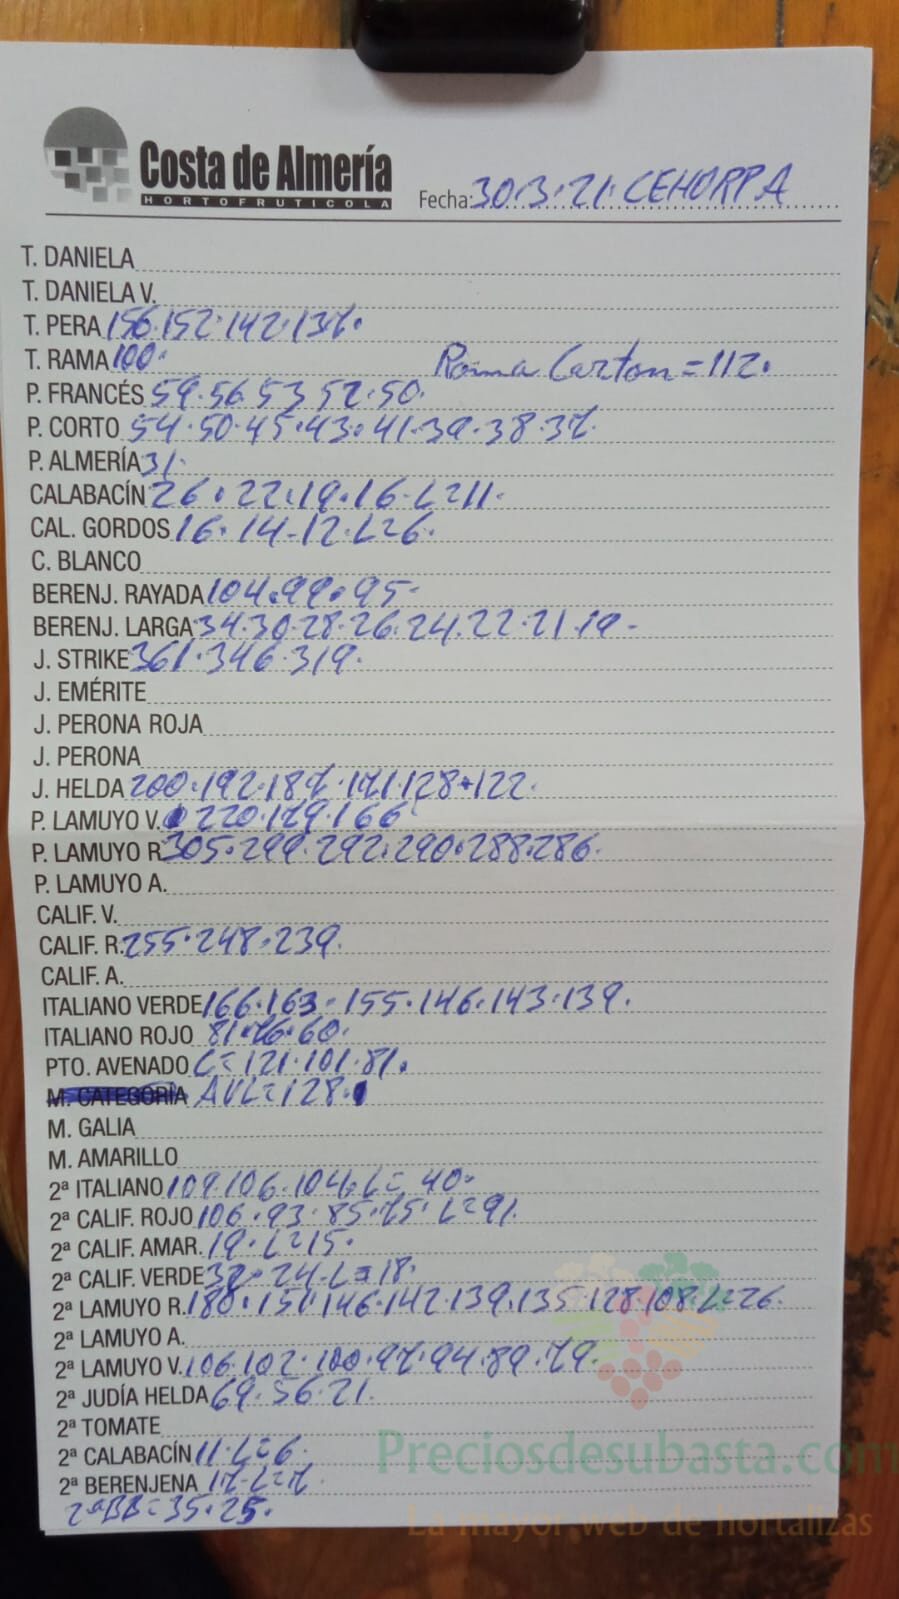 Costa de Almería
HORTOFRUTICOLA
Fecha: 30.3.21. CEHORPA
T. DANIELA
T. DANIELA V.
T. PERA 156.152.142.137.
T. RAMA 100. Roma Carton=112.
P. FRANCÉS 59.56.53.52.50.
P. CORTO 54.50.45.43.41.39.38.37.
P. ALMERÍA 31.
CALABACÍN 26.22.19.16.L=11.
CAL. GORDOS 16.14-12.L=6.
C. BLANCO
BERENJ. RAYADA 104.99.95.
BERENJ. LARGA 34.30.28.26.24.22.21.19-
J. STRIKE 361.346.319.
J. EMÉRITE
J. PERONA ROJA
J. PERONA
J. HELDA 200.192.187.171.128.122.
P. LAMUYO V. 220.179.166
P. LAMUYO R. 305.299.292.290.288.286.
P. LAMUYO A.
CALIF. V.
CALIF. R. 255.248.239.
CALIF. A.
ITALIANO VERDE 166.163-155.146.143.139.
ITALIANO ROJO 81.76.60.
PTO. AVENADO L=121.101.81.
M. CATEGORÍA AVL=128.
M. GALIA
M. AMARILLO
2ª ITALIANO 109.106.104.L=40.
2ª CALIF. ROJO 106.93.85.75.L=91.
2ª CALIF. AMAR. 19.L=15.
2ª CALIF. VERDE 32-24-L=18.
2ª LAMUYO R. 180.151.146.142.139.135.128.108.L=26.
2ª LAMUYO A.
2ª LAMUYO V. 106.102.100.97.94.89.79.
2ª JUDÍA HELDA 69.56.21.
2ª TOMATE
2ª CALABACÍN 11.L=6.
2ª BERENJENA 17-L=7.
2ªBB=35.25.
Preciosdesubasta.com
La mayor web de hortalizas